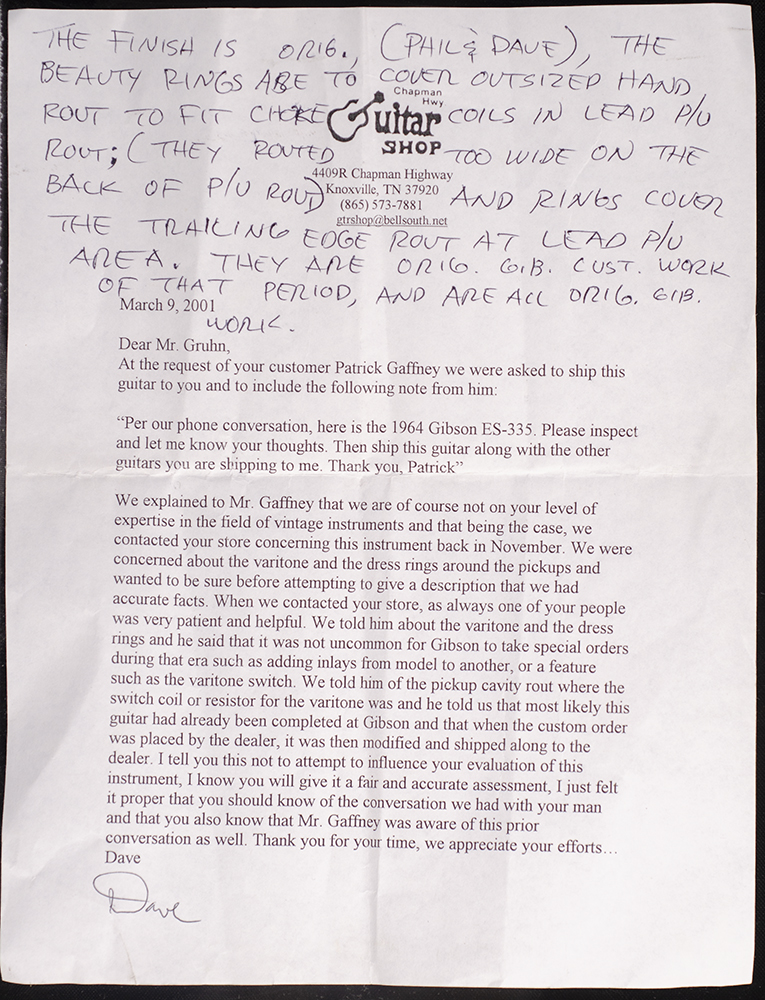 THE FINISH IS ORIG., (PHIL & DAVE), THE
BEAUTY RINGS ARE TO COVER OUTSIZED HAND
ROUT TO FIT CHOKE COILS IN LEAD P/U
ROUT; (THEY ROUTED TOO WIDE ON THE
BACK OF P/U ROUT) AND RINGS COVER
THE TRAILING EDGE ROUT AT LEAD P/U
AREA. THEY ARE ORIG. GIB. CUST. WORK
OF THAT PERIOD, AND ARE ALL ORIG. GIB.
WORK.
Chapman
Hwy
Guitar
SHOP
4409R Chapman Highway
Knoxville, TN 37920
(865) 573-7881
gtrshop@bellsouth.net
March 9, 2001
Dear Mr. Gruhn,
At the request of your customer Patrick Gaffney we were asked to ship this
guitar to you and to include the following note from him:
“Per our phone conversation, here is the 1964 Gibson ES-335. Please inspect
and let me know your thoughts. Then ship this guitar along with the other
guitars you are shipping to me. Thank you, Patrick”
We explained to Mr. Gaffney that we are of course not on your level of
expertise in the field of vintage instruments and that being the case, we
contacted your store concerning this instrument back in November. We were
concerned about the varitone and the dress rings around the pickups and
wanted to be sure before attempting to give a description that we had
accurate facts. When we contacted your store, as always one of your people
was very patient and helpful. We told him about the varitone and the dress
rings and he said that it was not uncommon for Gibson to take special orders
during that era such as adding inlays from model to another, or a feature
such as the varitone switch. We told him of the pickup cavity rout where the
switch coil or resistor for the varitone was and he told us that most likely this
guitar had already been completed at Gibson and that when the custom order
was placed by the dealer, it was then modified and shipped along to the
dealer. I tell you this not to attempt to influence your evaluation of this
instrument, I know you will give it a fair and accurate assessment, I just felt
it proper that you should know of the conversation we had with your man
and that you also know that Mr. Gaffney was aware of this prior
conversation as well. Thank you for your time, we appreciate your efforts…
Dave
Dave